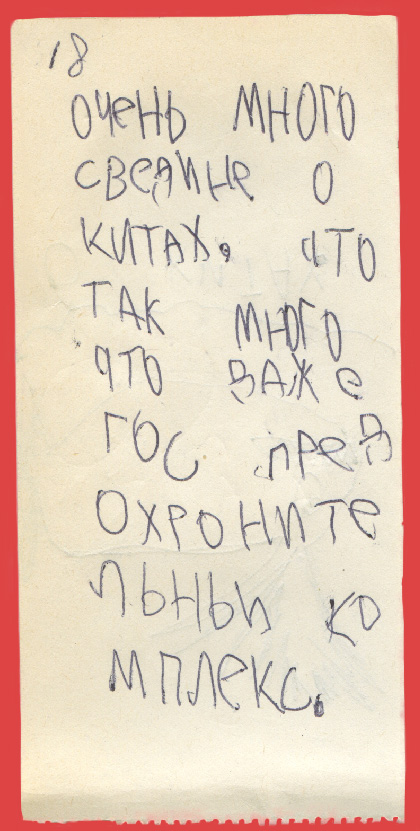 18
очень много
сведине о
китах. что
так много
что важе
гос пред
охроните
льный ко
мплекс.